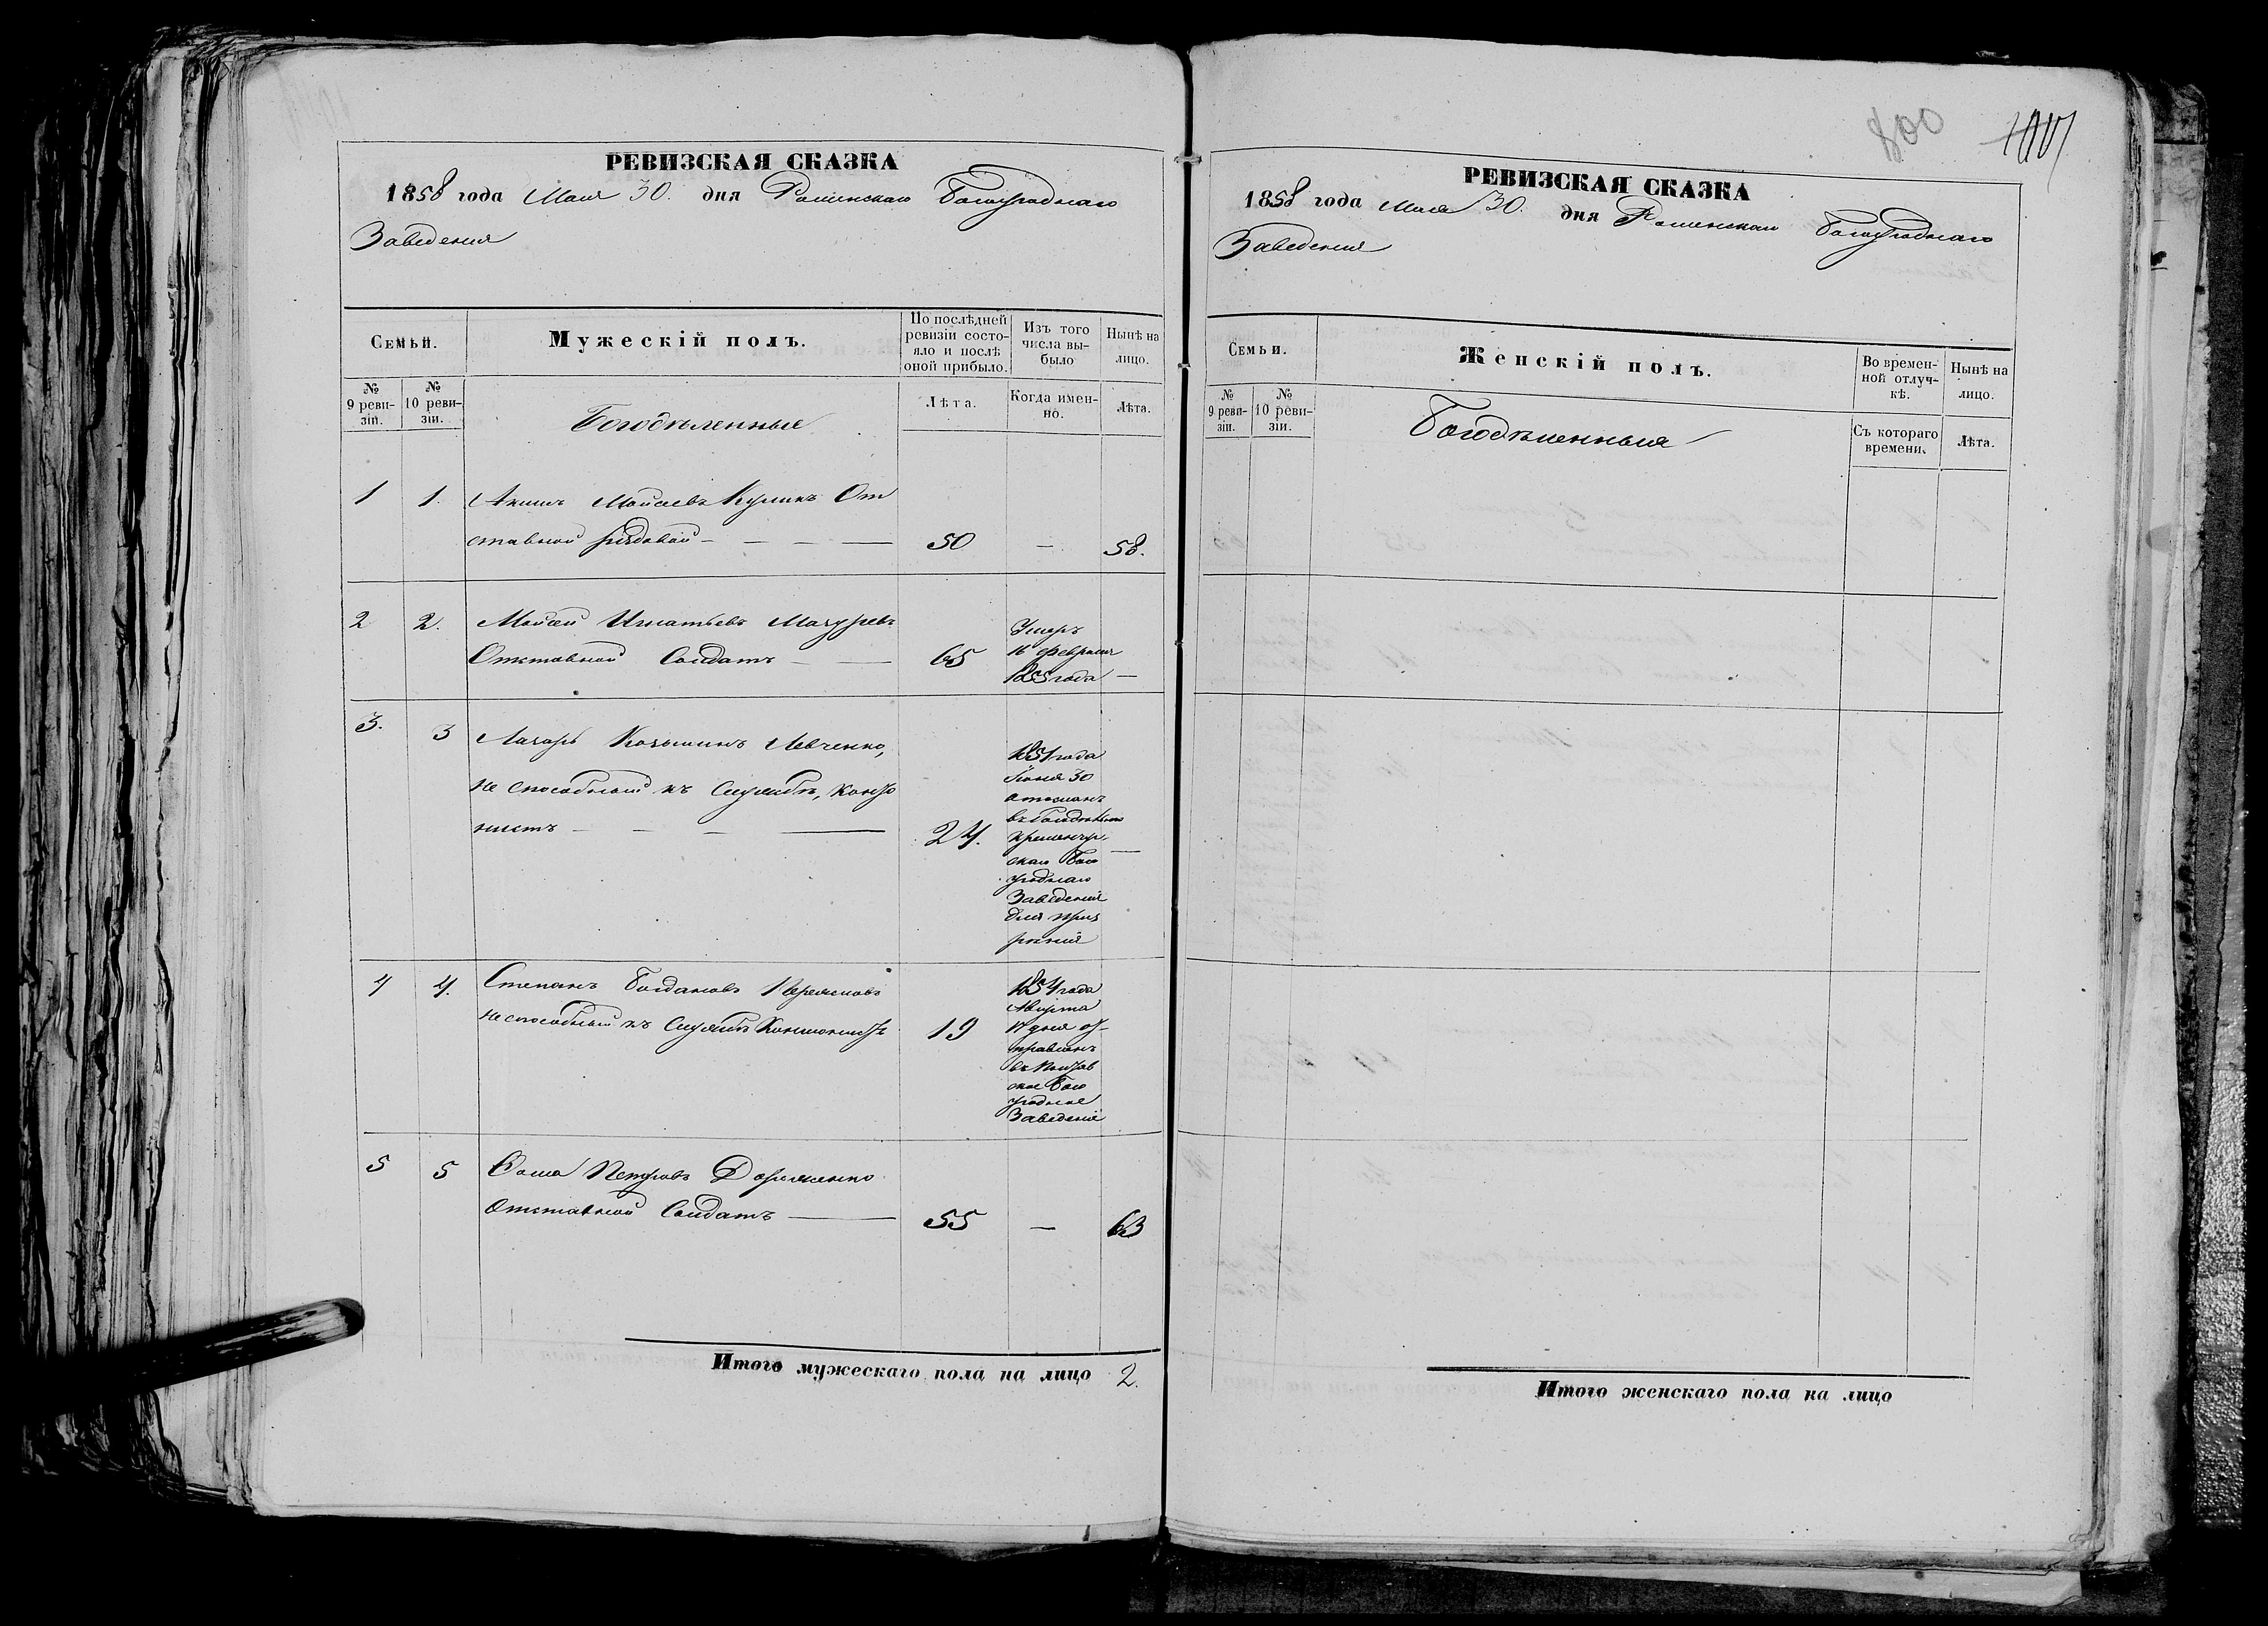 800
РЕВИЗСКАЯ СКАЗКА
1858 года Мая 30. дня Роменскаго Богоугоднаго
Заведения
Семьи.
Мужескій полъ.
По послѣдней ревизіи состояло и послѣ оной прибыло.
Изъ того числа выбыло
Нынѣ на лицо.
№ 9 ревизіи.
№ 10 ревизіи.
Богодѣленные
Лѣта.
Когда именно.
Лѣта.
1 1. Акимъ Мойсеевъ Куликъ От
ставной рядовой — 50 — 58.
2 2. Мойсей Игнатьевъ Мазуревъ
Отставной Солдатъ — 65
Умеръ
16 февраля
1855 года —
3. 3 Лазарь Козьминъ Левченко,
не способный къ Службѣ, Канто
нистъ — 24.
1851 года
Іюня 30
отосланъ
Кременчуг
скаго Бого
угоднаго
Заведенія
для приз
рѣнія
4 4. Степанъ Богдановъ
неспособный къ Службѣ Кантонистъ 19
1854 года
Августа
17 дня от
правленъ
въ Полтав
ское Бого
угодное
Заведеніе
5 5 Фома Петровъ Дорошенко
Отставной Солдатъ — 55 — 63
Итого мужескаго пола на лицо 2.
РЕВИЗСКАЯ СКАЗКА
1858 года Мая 30. дня Роменскаго Богоугоднаго
Заведения
Семьи.
Женскій полъ.
Во временной отлучкѣ.
Нынѣ на лицо.
№ 9 ревизіи.
№ 10 ревизіи.
Богодѣленныя
Съ котораго времени.
Лѣта.
Итого женскаго пола на лицо